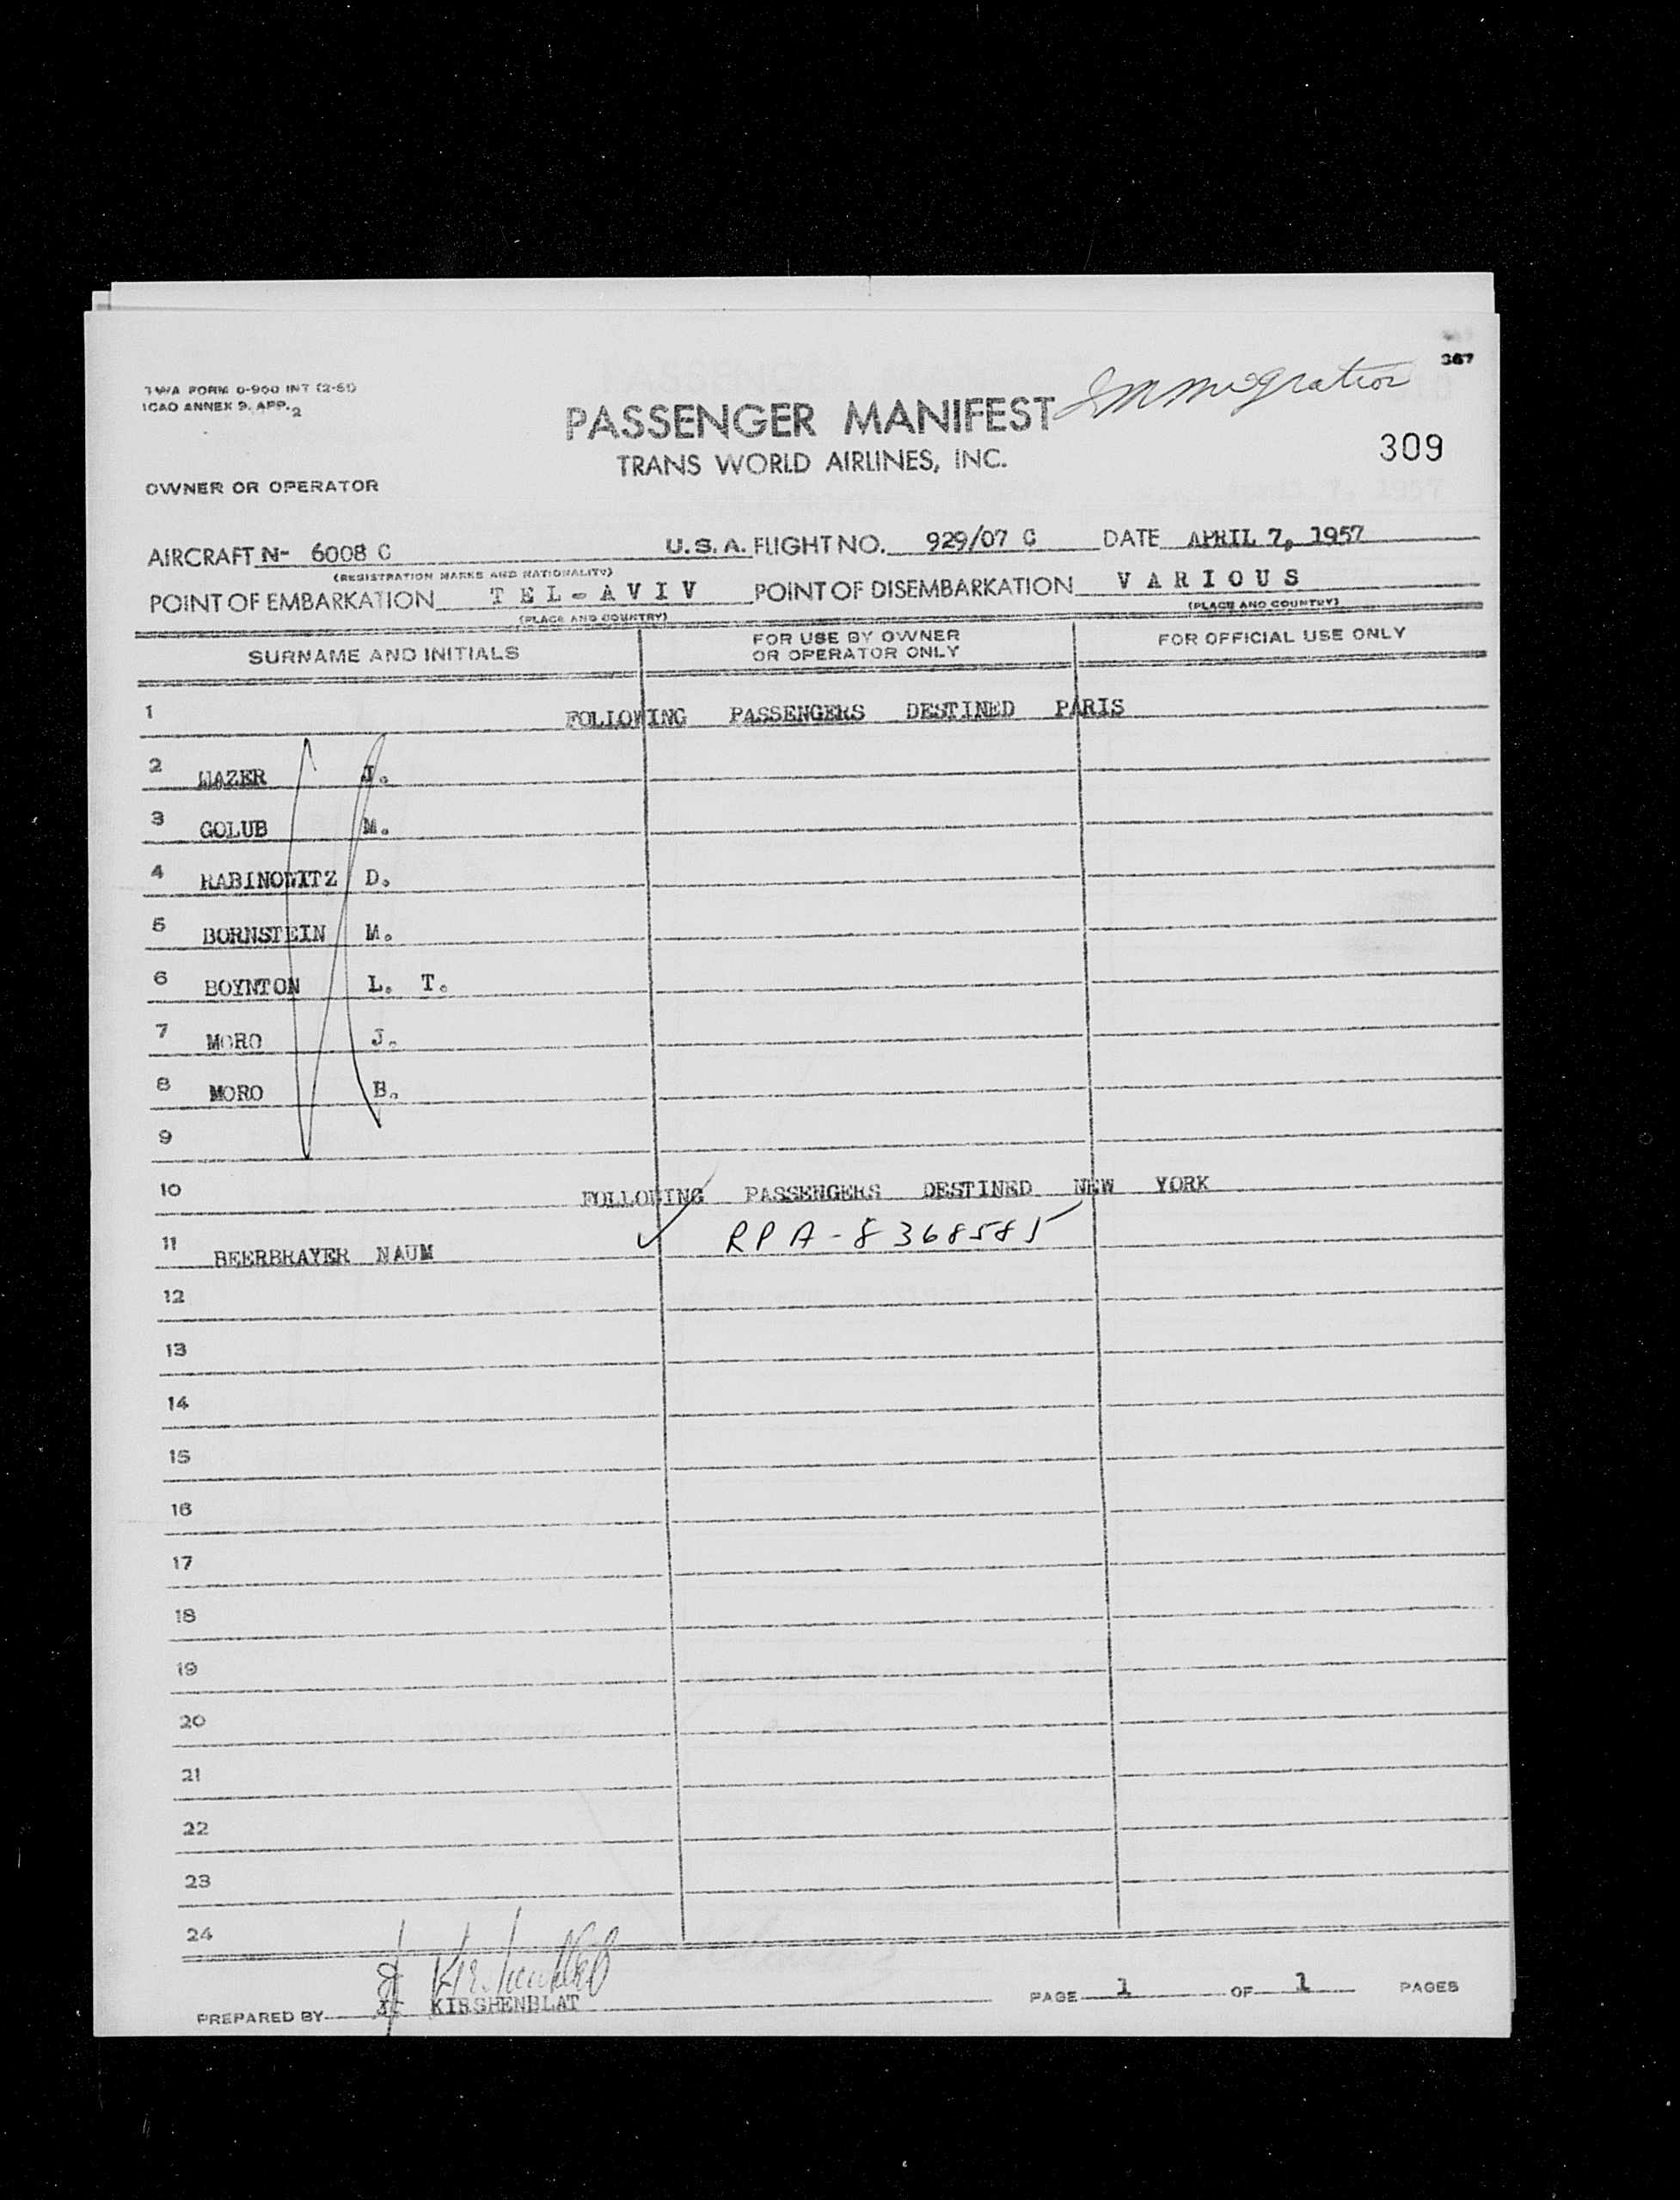 367
TWA FORM 0-960 INT (2-51)
ICAO ANNEX 9. APP. 2
Immigration
PASSENGER MANIFEST
309
TRANS WORLD AIRLINES, INC.
OWNER OR OPERATOR
AIRCRAFT N- 6008 C U. S. A. FLIGHT NO. 929/07 DATE APRIL 7, 1957
(REGISTRATION MARKS AND NATIONALITY)
POINT OF EMBARKATION TEL-AVIV POINT OF DISEMBARKATION VARIOUS
(PLACE AND COUNTRY) (PLACE AND COUNTRY)
SURNAME AND INITIALS FOR USE BY OWNER OR OPERATOR ONLY FOR OFFICIAL USE ONLY
1 FOLLOWING PASSENGERS DESTINED PARIS
2 MAZER J.
3 GOLUB M.
4 RABINOWITZ D.
5 BORNSTEIN M.
6 BOYNTON L. T.
7 MORO J.
8 MORO B.
9
10 FOLLOWING PASSENGERS DESTINED NEW YORK
11 BEERBRAYER NAUM ✓ RPA-8368585
12
13
14
15
16
17
18
19
20
21
22
23
24
PREPARED BY KIRSHENBLAT PAGE 1 OF 1 PAGES